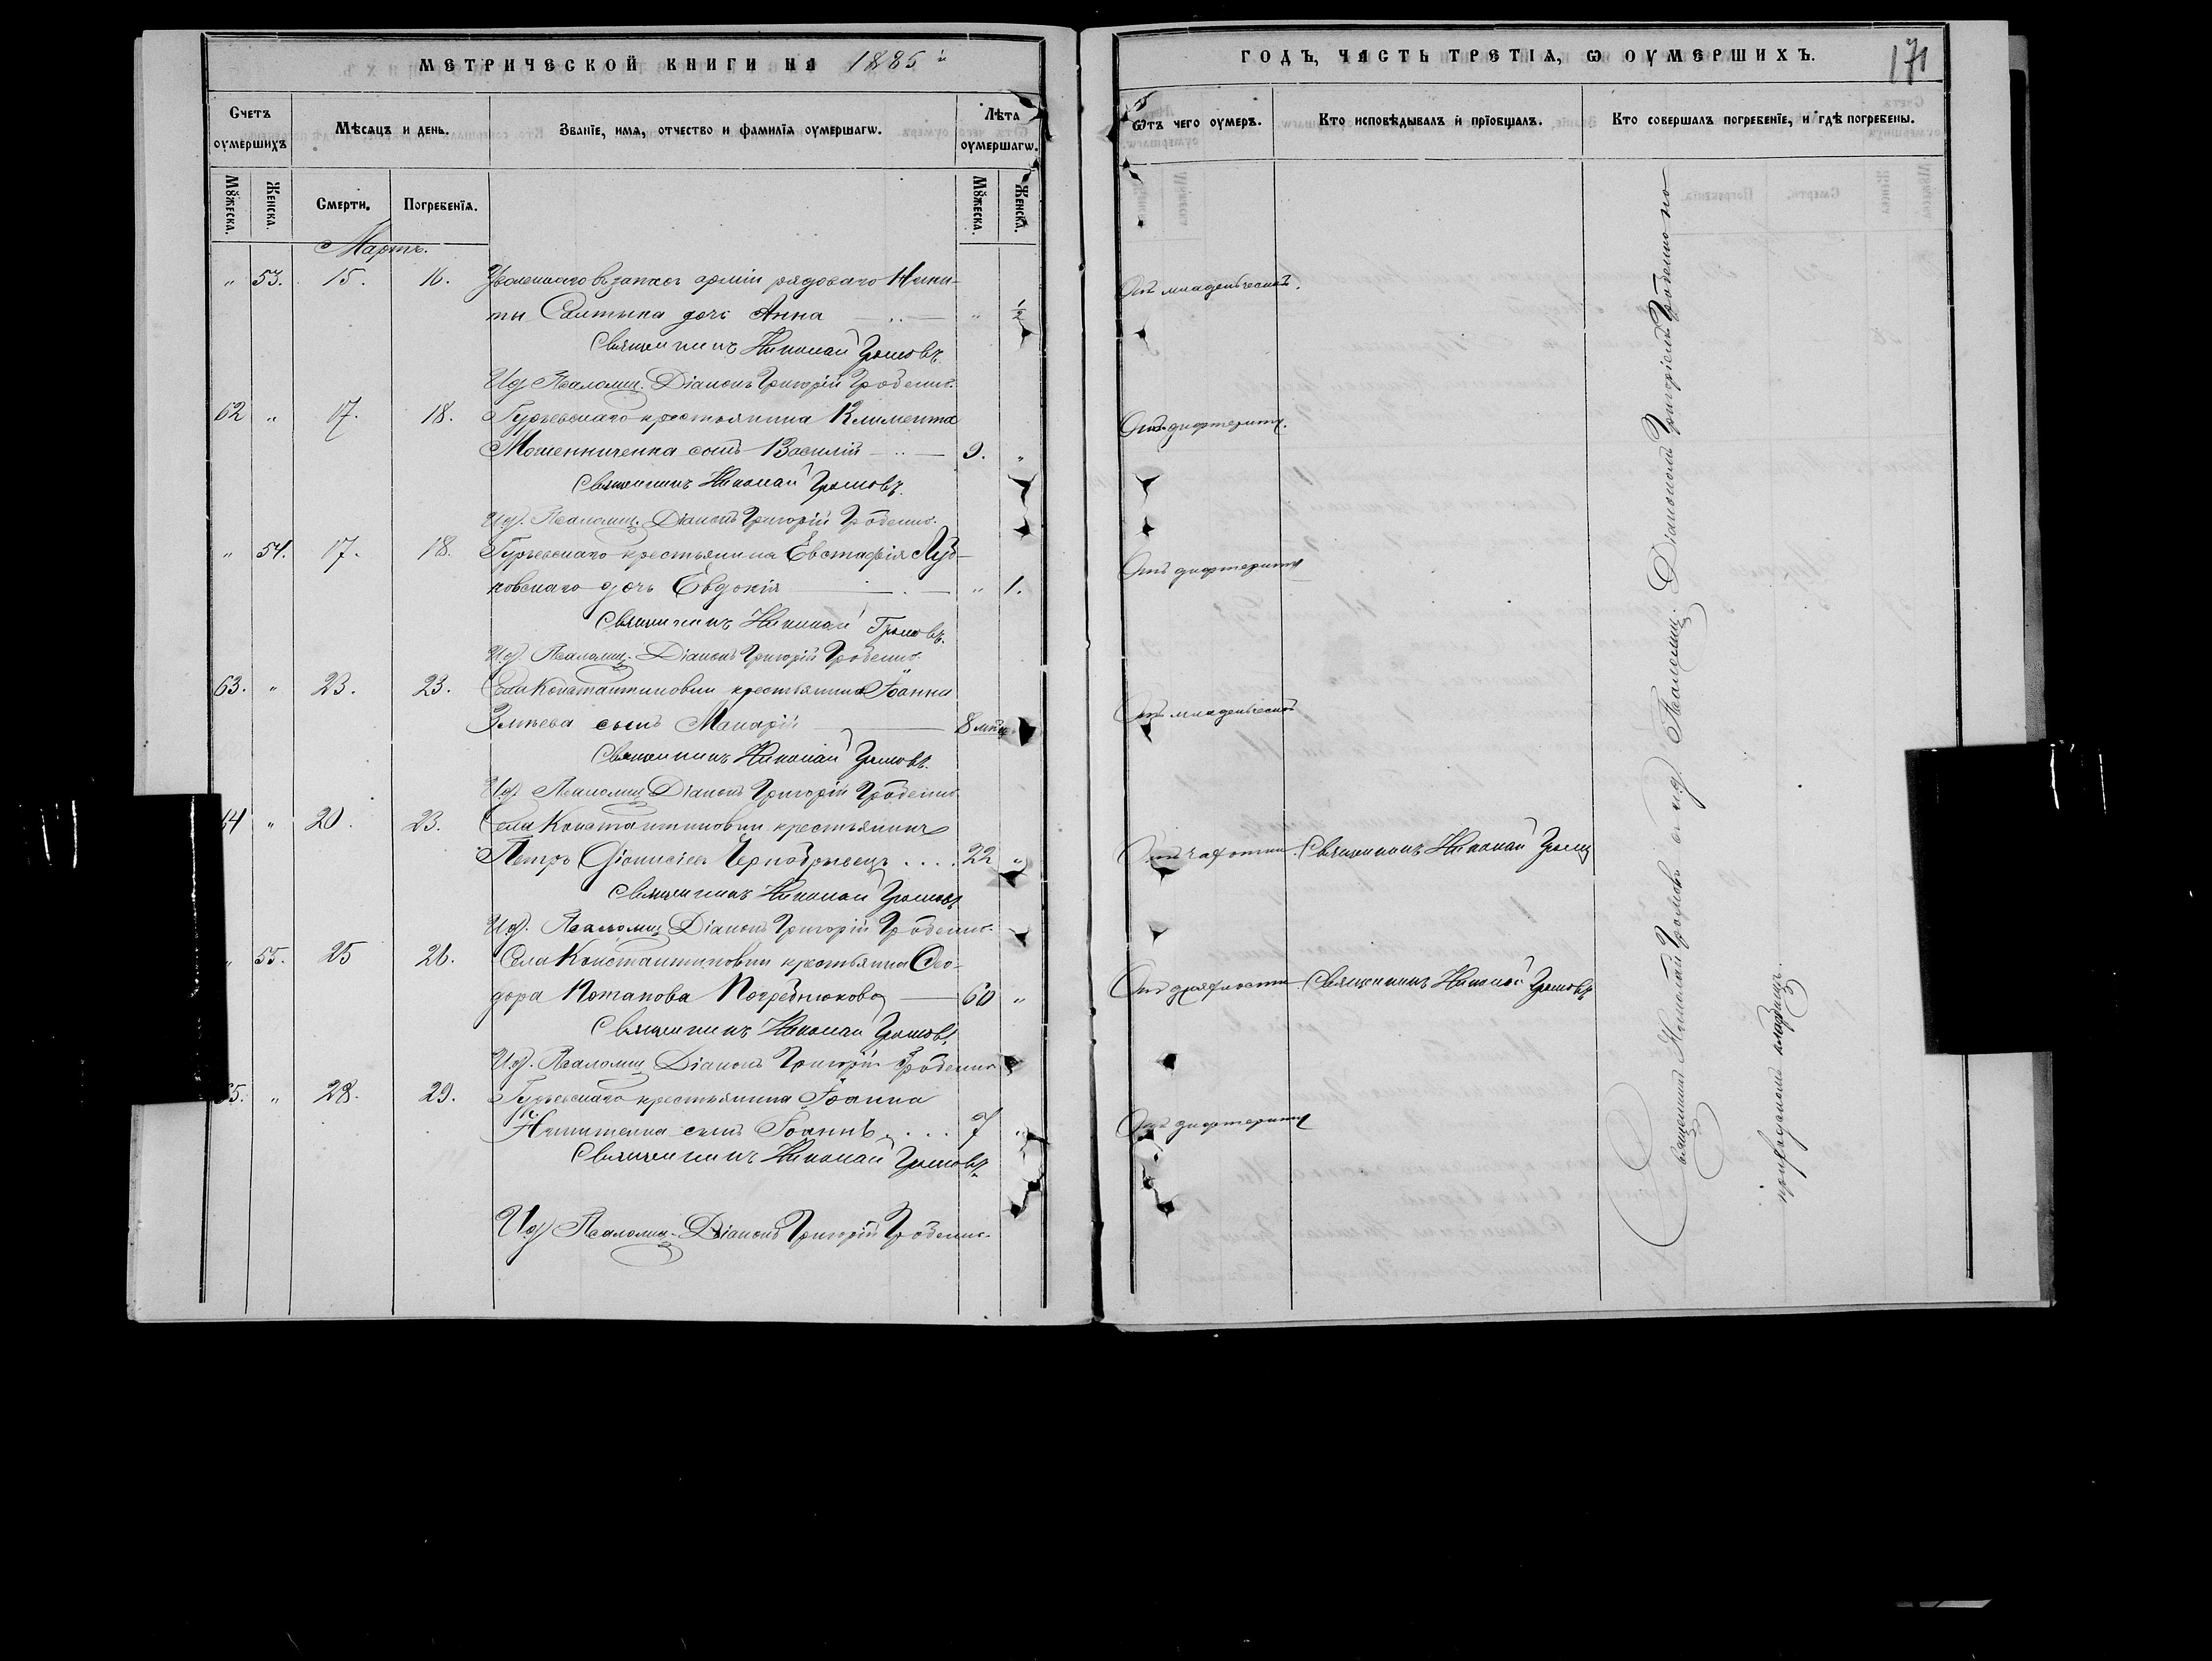 МЕТРИЧЕСКОЙ КНИГИ НА 1885й
Счетъ оумершихъ
Мѣсяцъ и день.
Званїе, имя, отчество и фамилїя оумершагѡ.
Лѣта оумершагѡ.
Мꙋжеска. Женска. Смерти. Погребенїя. Мꙋжеска. Женска.
Мартъ.
„ 53. 15. 16. Уволеннаго въ запасъ арміи рядоваго Ники-
ты Салтыка дочь Анна „ ½
Священникъ Николай Громовъ.
И.д. Псаломщ. Діаконъ Григорій Гробенко.
62 „ 17. 18. Гурьевскаго крестьянина Климента
Мошенниченка сынъ Василій 9. „
Священникъ Николай Громовъ.
И.д. Псаломщ. Діаконъ Григорій Гробенко.
„ 54. 17. 18. Гурьевскаго крестьянина Евстафія
ковскаго дочь Евдокія „ 1.
Священникъ Николай Громовъ.
И.д. Псаломщ. Діаконъ Григорій Гробенко.
63. „ 23. 23. Села Константиновки крестьянина Іоанна
Змѣева сынъ Макарій 8 мѣс.
Священникъ Николай Громовъ.
И.д. Псаломщ. Діаконъ Григорій Гробенко
64 „ 20. 23. Села Константиновки крестьянинъ
Петръ Діонисіевъ Чернобривецъ 22 „
Священникъ Николай Громовъ
И.д. Псаломщ. Діаконъ Григорій Гробенко.
„ 55. 25 26. Села Константиновки крестьянина Ѳео-
дора Потапова Погребнюкова 60 „
Священникъ Николай Громовъ.
И.д. Псаломщ. Діаконъ Григорій Гробенко
65. „ 28. 29. Гурьевскаго крестьянина Іоанна
сынъ Іоаннъ 7 „
Священникъ Николай Громовъ
И.д. Псаломщ. Діаконъ Григорій Гробенко.
ГОДЪ, ЧАСТЬ ТРЕТІѦ, Ѡ ОУМЕРШИХЪ.
171
Ѿтъ чего оумеръ.
Кто исповѣдывалъ и прїобщалъ.
Кто совершалъ погребенїе, и гдѣ погребены.
Отъ младенческой.
Отъ дифтерита.
Отъ дифтерита
Отъ младенческой
Отъ чахотки. Священникъ Николай Громовъ
Отъ дряхлости Священникъ Николай Громовъ
Отъ дифтерита
Священникъ Николай Громовъ съ и.д. Псаломщ. Діакономъ Григоріемъ Гробенко на
приходскомъ кладбищѣ.